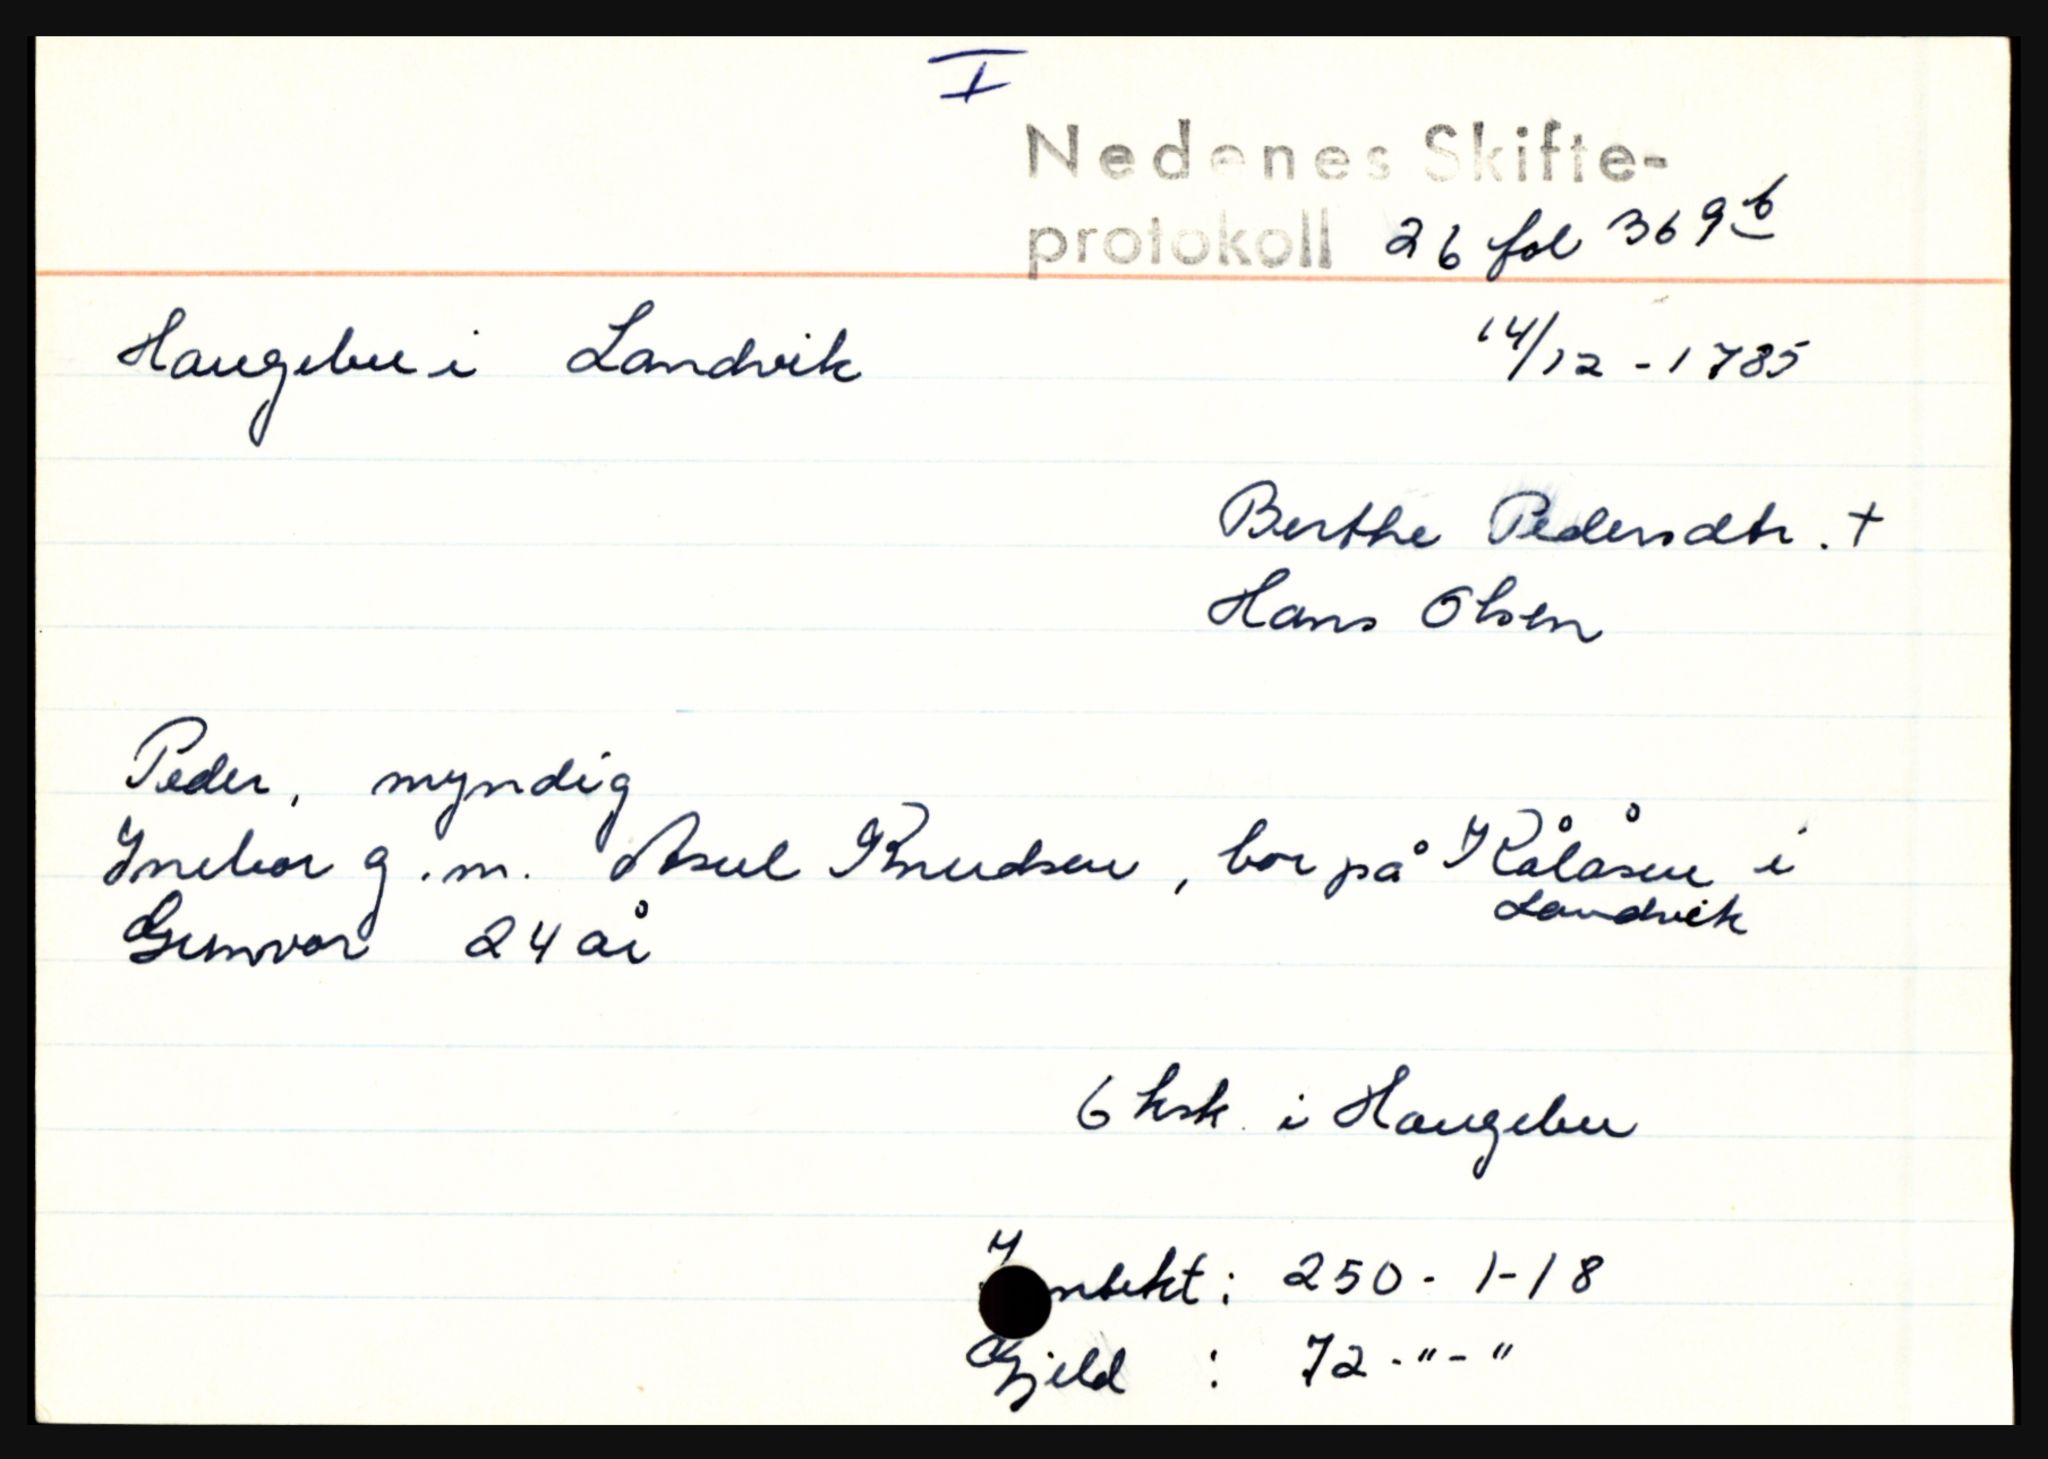 I
Nedenes Skifte-
protokoll 26 fol 369b
Haugebu i Landvik 14/12 - 1785
Berthe Pedersdtr. +
Hans Olsen
Peder, myndig
Inebor g.m. Asul Knudsen, bor på Kålåsen i
Landvik
Gunvor 24 år
6 ksk. i Haugebu
Inntekt: 250 - 1 - 18
Gjeld : 72 - " - "